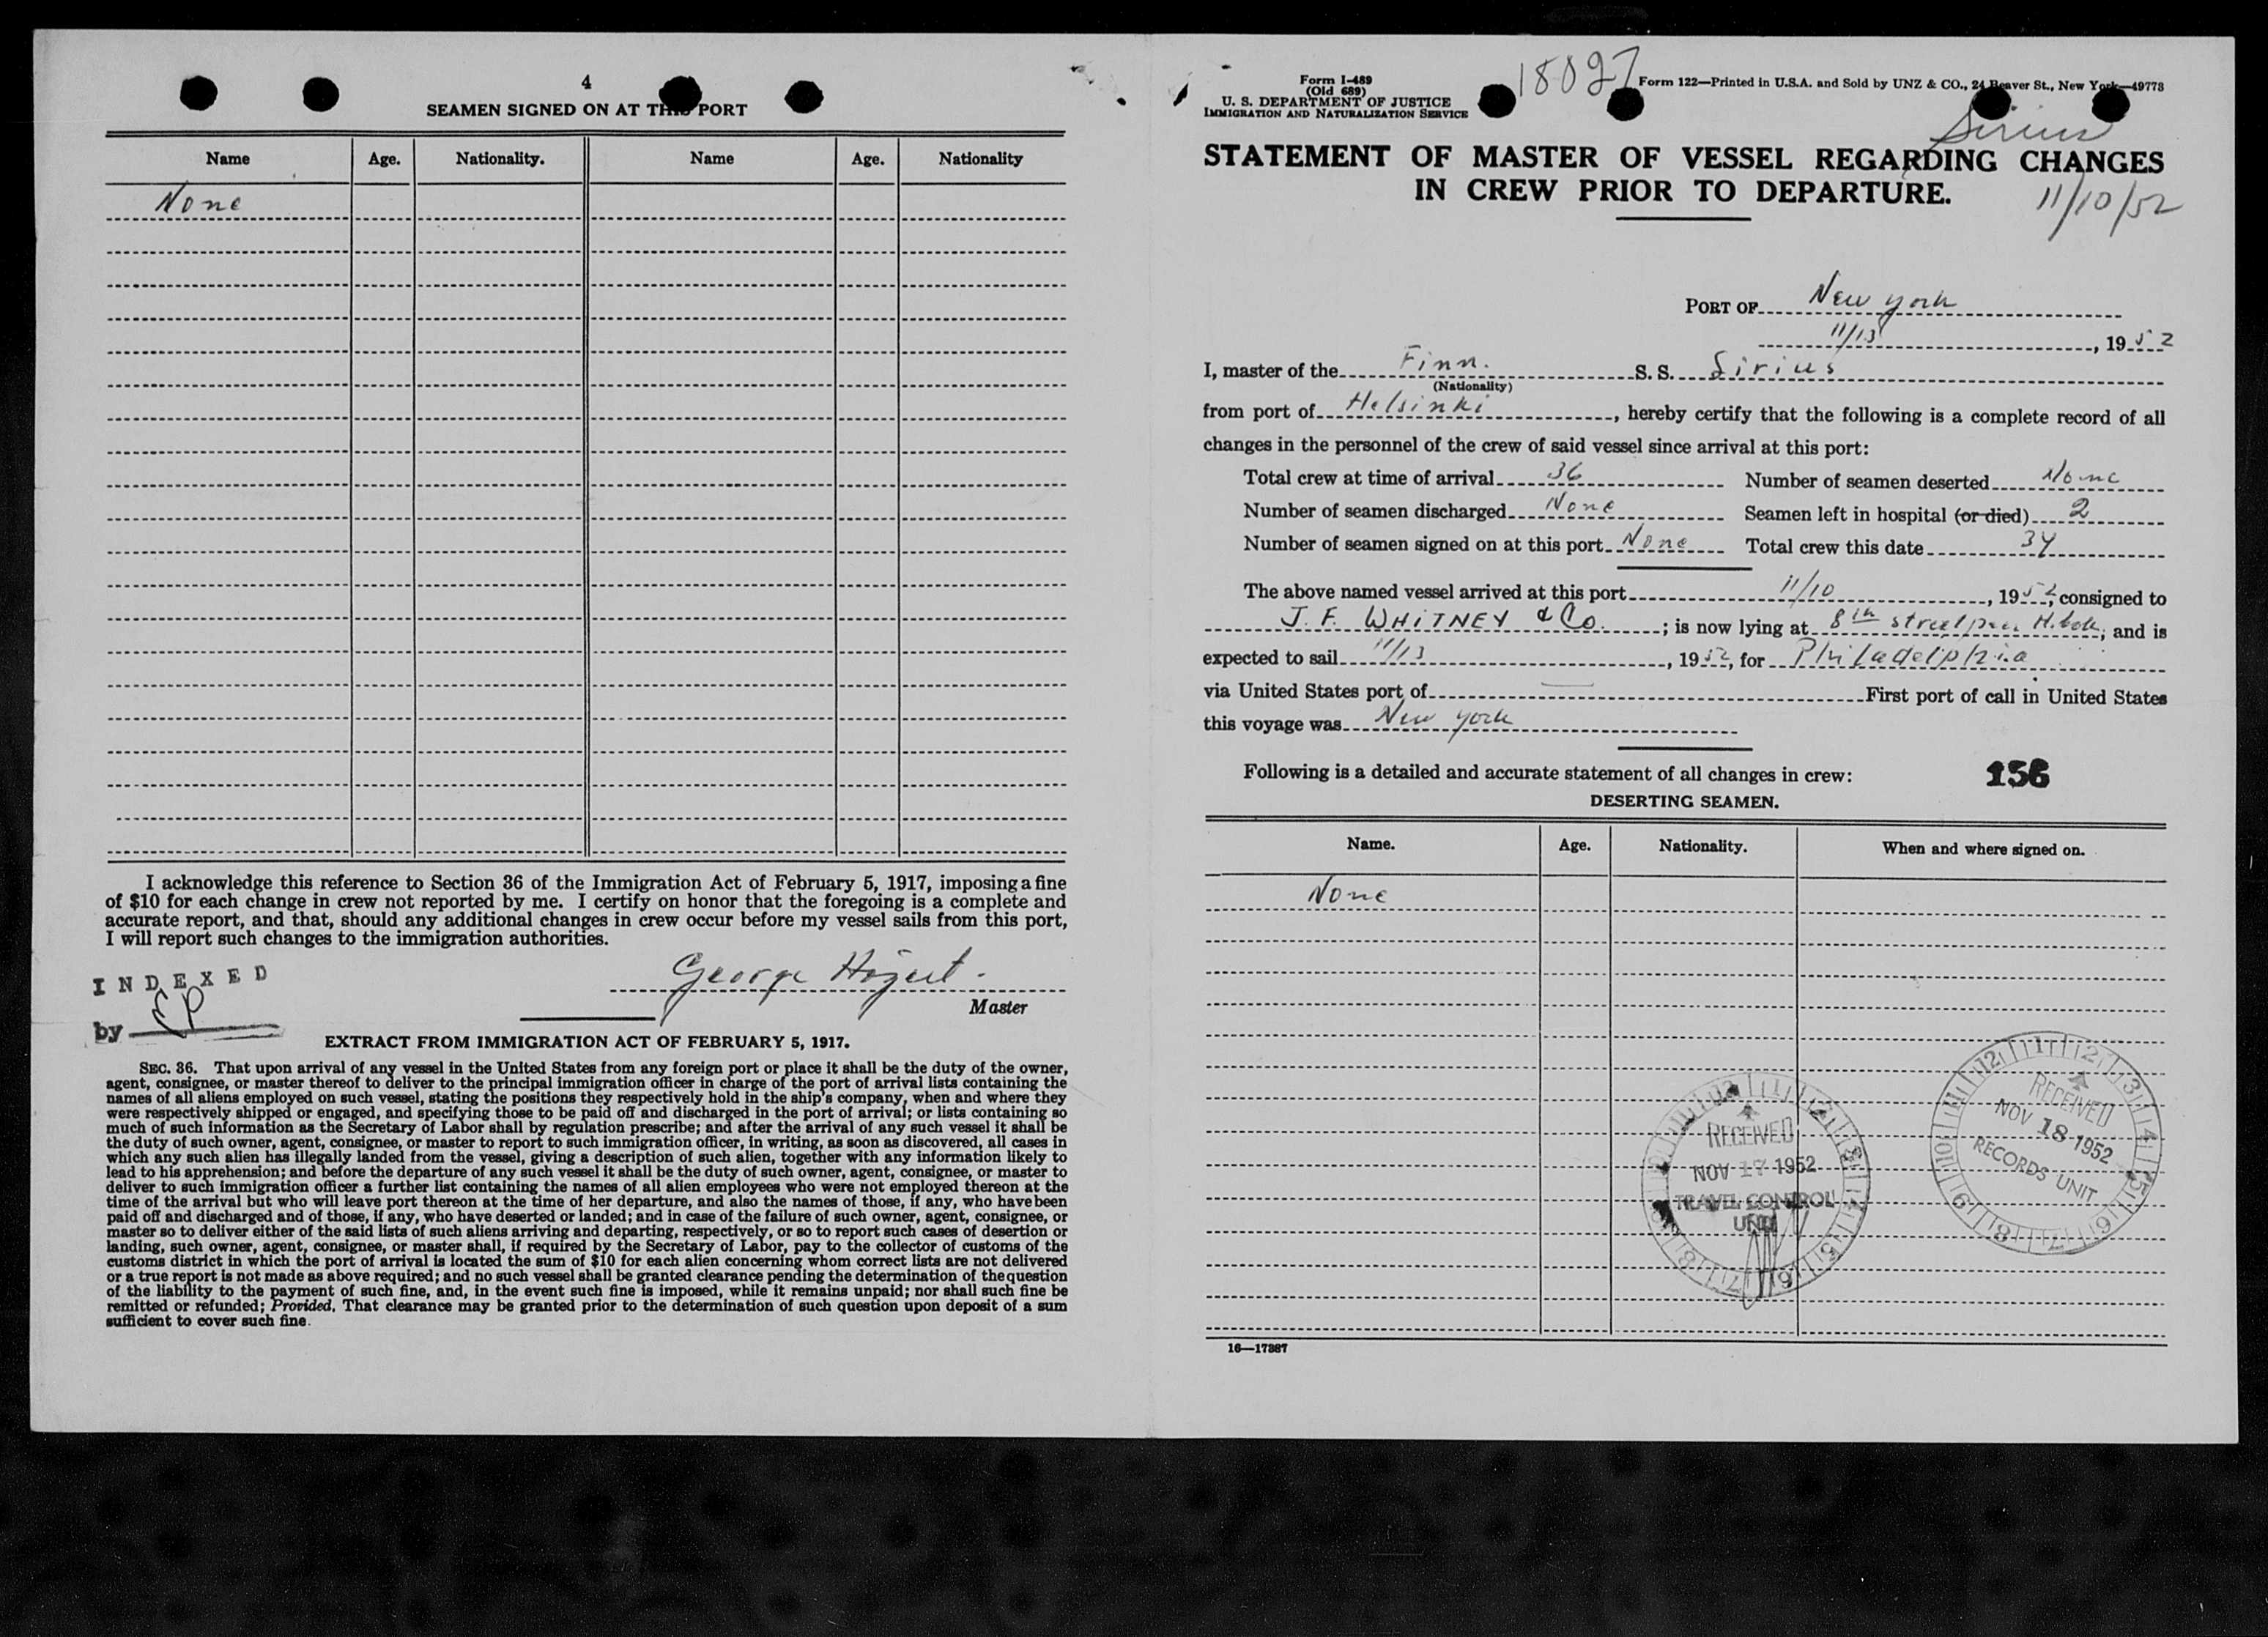 4
SEAMEN SIGNED ON AT THIS PORT
Name Age. Nationality. Name Age. Nationality
None
I acknowledge this reference to Section 36 of the Immigration Act of February 5, 1917, imposing a fine
of $10 for each change in crew not reported by me. I certify on honor that the foregoing is a complete and
accurate report, and that, should any additional changes in crew occur before my vessel sails from this port,
I will report such changes to the immigration authorities.
INDEXED
by EP
George
Master
EXTRACT FROM IMMIGRATION ACT OF FEBRUARY 5, 1917.
SEC. 36. That upon arrival of any vessel in the United States from any foreign port or place it shall be the duty of the owner,
agent, consignee, or master thereof to deliver to the principal immigration officer in charge of the port of arrival lists containing the
names of all aliens employed on such vessel, stating the positions they respectively hold in the ship's company, when and where they
were respectively shipped or engaged, and specifying those to be paid off and discharged in the port of arrival; or lists containing so
much of such information as the Secretary of Labor shall by regulation prescribe; and after the arrival of any such vessel it shall be
the duty of such owner, agent, consignee, or master to report to such immigration officer, in writing, as soon as discovered, all cases in
which any such alien has illegally landed from the vessel, giving a description of such alien, together with any information likely to
lead to his apprehension; and before the departure of any such vessel it shall be the duty of such owner, agent, consignee, or master to
deliver to such immigration officer a further list containing the names of all alien employees who were not employed thereon at the
time of the arrival but who will leave port thereon at the time of her departure, and also the names of those, if any, who have been
paid off and discharged and of those, if any, who have deserted or landed; and in case of the failure of such owner, agent, consignee, or
master so to deliver either of the said lists of such aliens arriving and departing, respectively, or so to report such cases of desertion or
landing, such owner, agent, consignee, or master shall, if required by the Secretary of Labor, pay to the collector of customs of the
customs district in which the port of arrival is located the sum of $10 for each alien concerning whom correct lists are not delivered
or a true report is not made as above required; and no such vessel shall be granted clearance pending the determination of the question
of the liability to the payment of such fine, and, in the event such fine is imposed, while it remains unpaid; nor shall such fine be
remitted or refunded; Provided, That clearance may be granted prior to the determination of such question upon deposit of a sum
sufficient to cover such fine.
Form I-489
(Old 689)
U. S. DEPARTMENT OF JUSTICE
IMMIGRATION AND NATURALIZATION SERVICE
18027
Form 122—Printed in U.S.A. and Sold by UNZ & CO., 24 Beaver St., New York—49778
Sirius
STATEMENT OF MASTER OF VESSEL REGARDING CHANGES
IN CREW PRIOR TO DEPARTURE.
11/10/52
PORT OF New York
11/13, 1952
I, master of the Finn. S. S. Sirius
(Nationality)
from port of Helsinki, hereby certify that the following is a complete record of all
changes in the personnel of the crew of said vessel since arrival at this port:
Total crew at time of arrival 36 Number of seamen deserted None
Number of seamen discharged None Seamen left in hospital (or died) 2
Number of seamen signed on at this port None Total crew this date 34
The above named vessel arrived at this port 11/10, 1952, consigned to
J. F. WHITNEY & Co.; is now lying at 8th street pier; and is
expected to sail 11/13, 1952, for Philadelphia
via United States port of — First port of call in United States
this voyage was New York
Following is a detailed and accurate statement of all changes in crew:
156
DESERTING SEAMEN.
Name. Age. Nationality. When and where signed on.
None
RECEIVED
NOV 17 1952
TRAVEL CONTROL
UNIT
RECEIVED
NOV 18 1952
RECORDS UNIT
16—17387